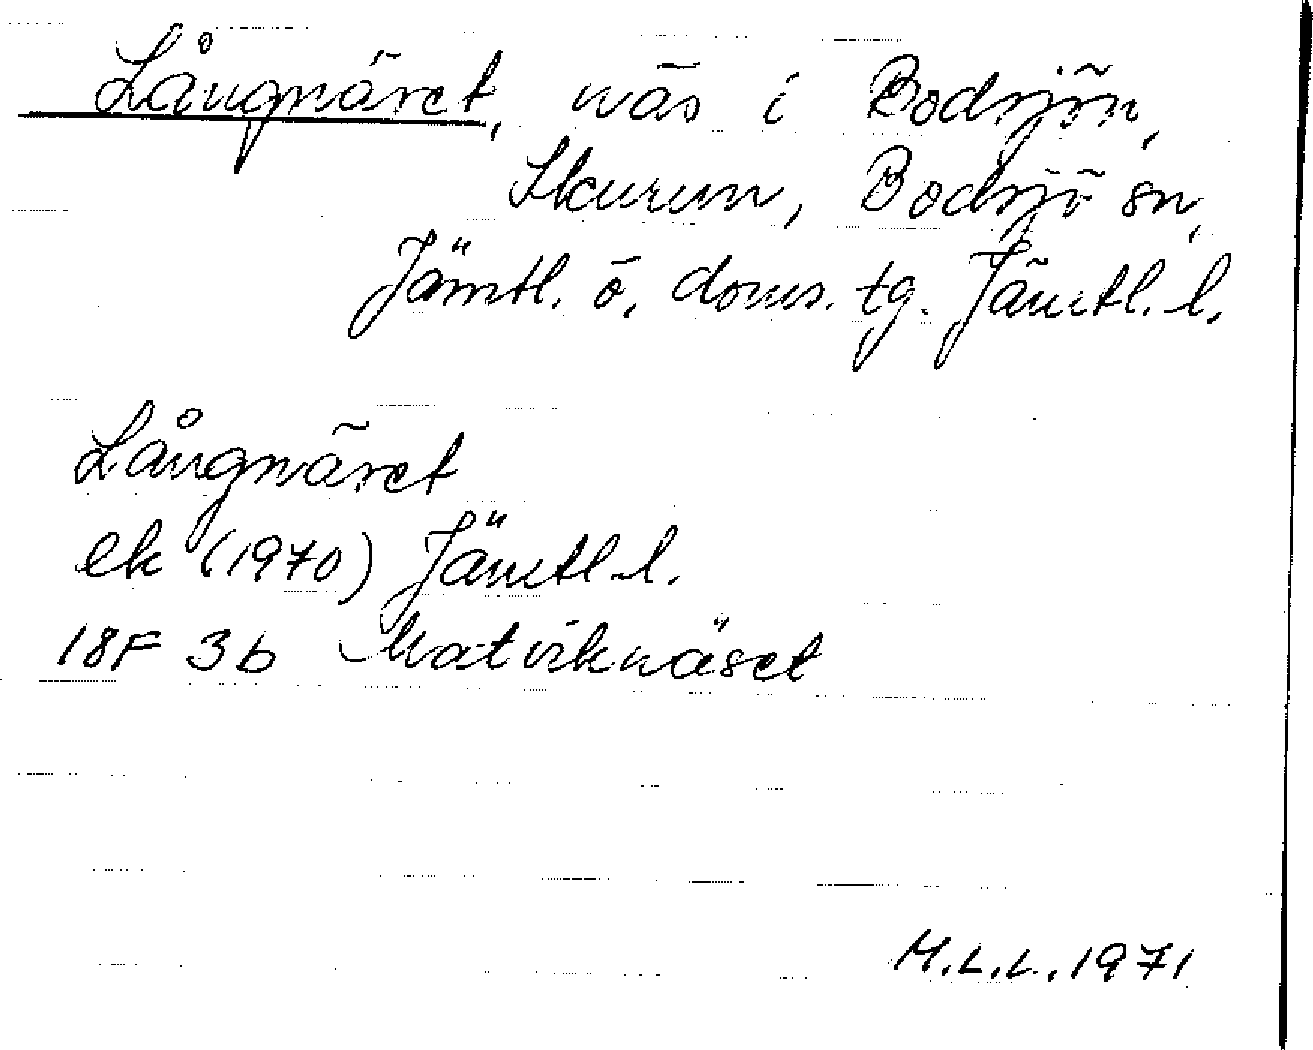 Långnäset, näs i Bodsjön,
Skurun, Bodsjö sn,
Jämtl. ö. doms. tg. Jämtl. l.
Långnäset
ek (1970) Jämtl. l.
18F 3b Matviknäset
M.L.L. 1971